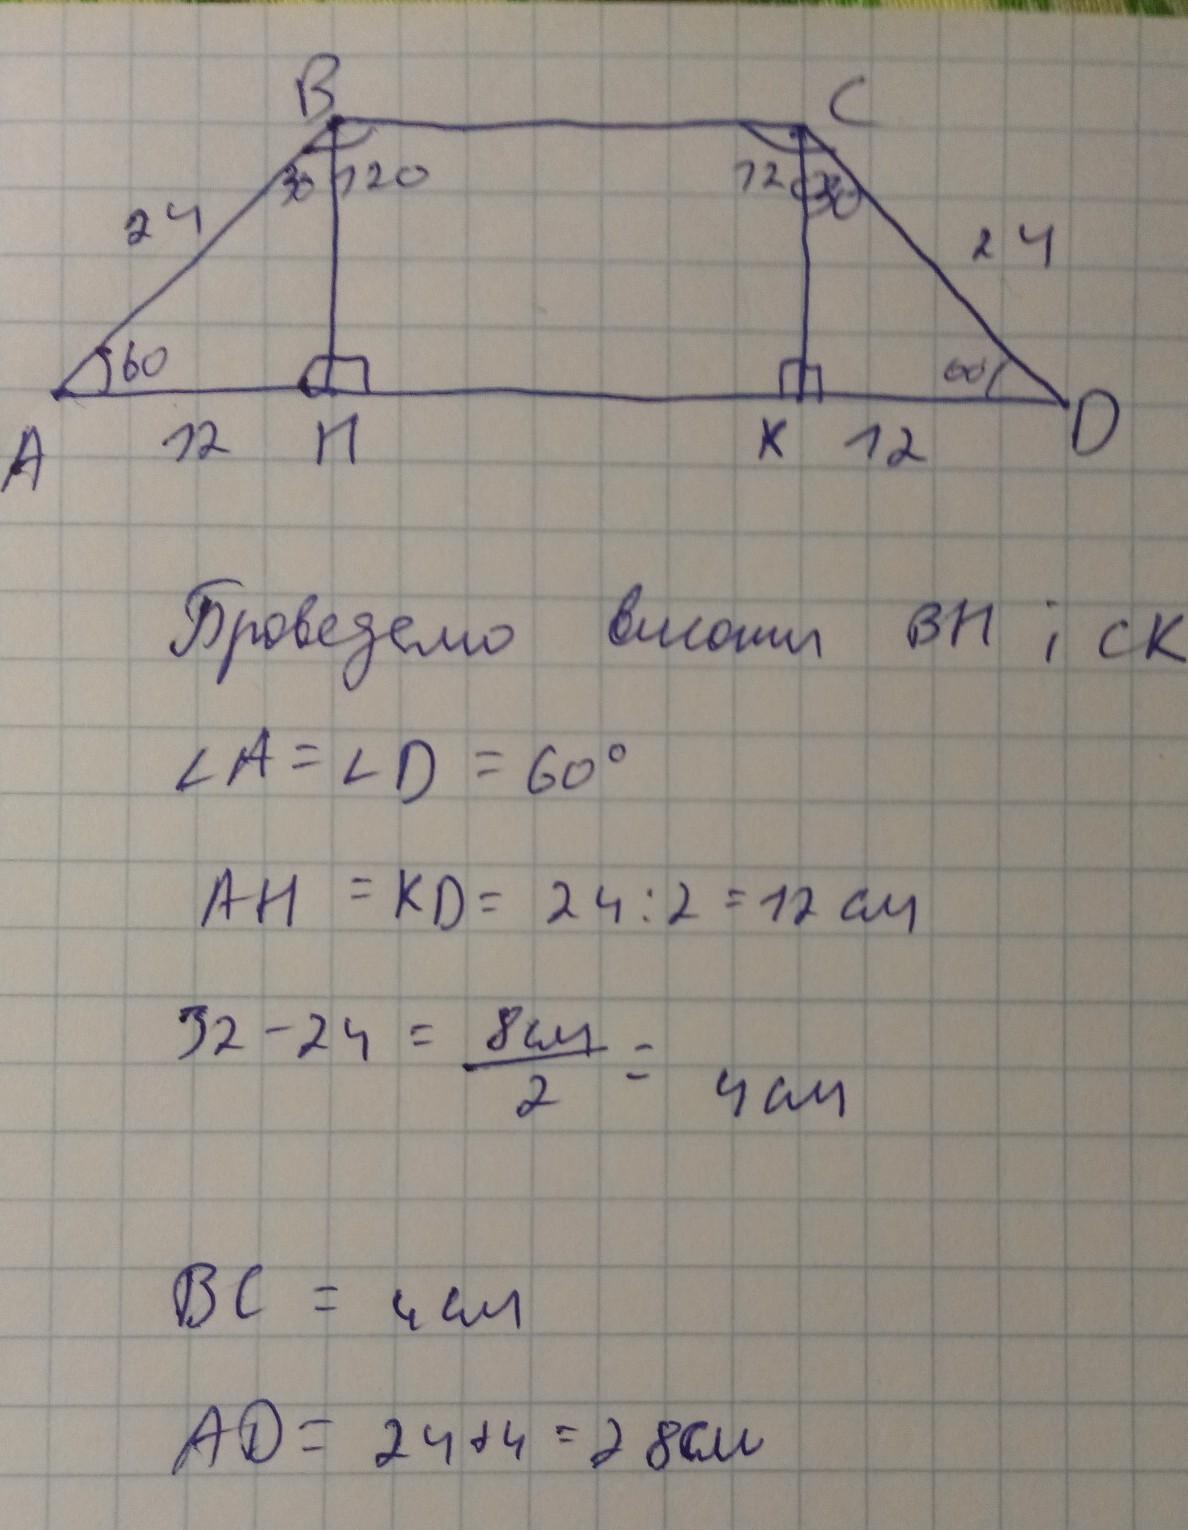 B C
30 120 120 30
24 24
60 60
A 12 H K 12 D
Проведемо висоти BH і CK
∠A = ∠D = 60°
AH = KD = 24 : 2 = 12 см
32 - 24 = 8см/2 = 4 см
BC = 4 см
AD = 24 + 4 = 28 см